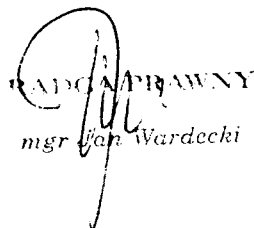 RADCA PRAWNY
mgr Jan Wardecki